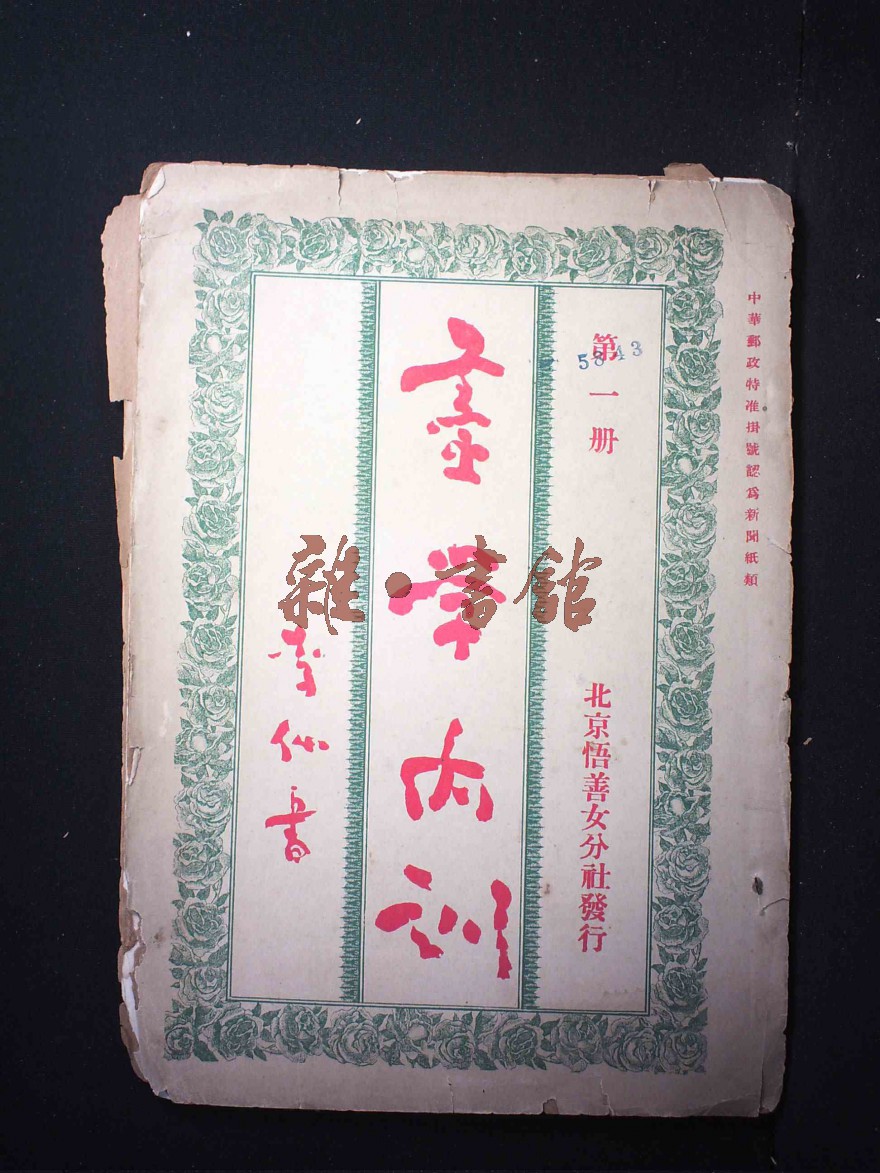 中華郵政特准掛號認爲新聞紙類
第一册
5343
北京悟善女分社發行
內訓
仙書
雜·書館